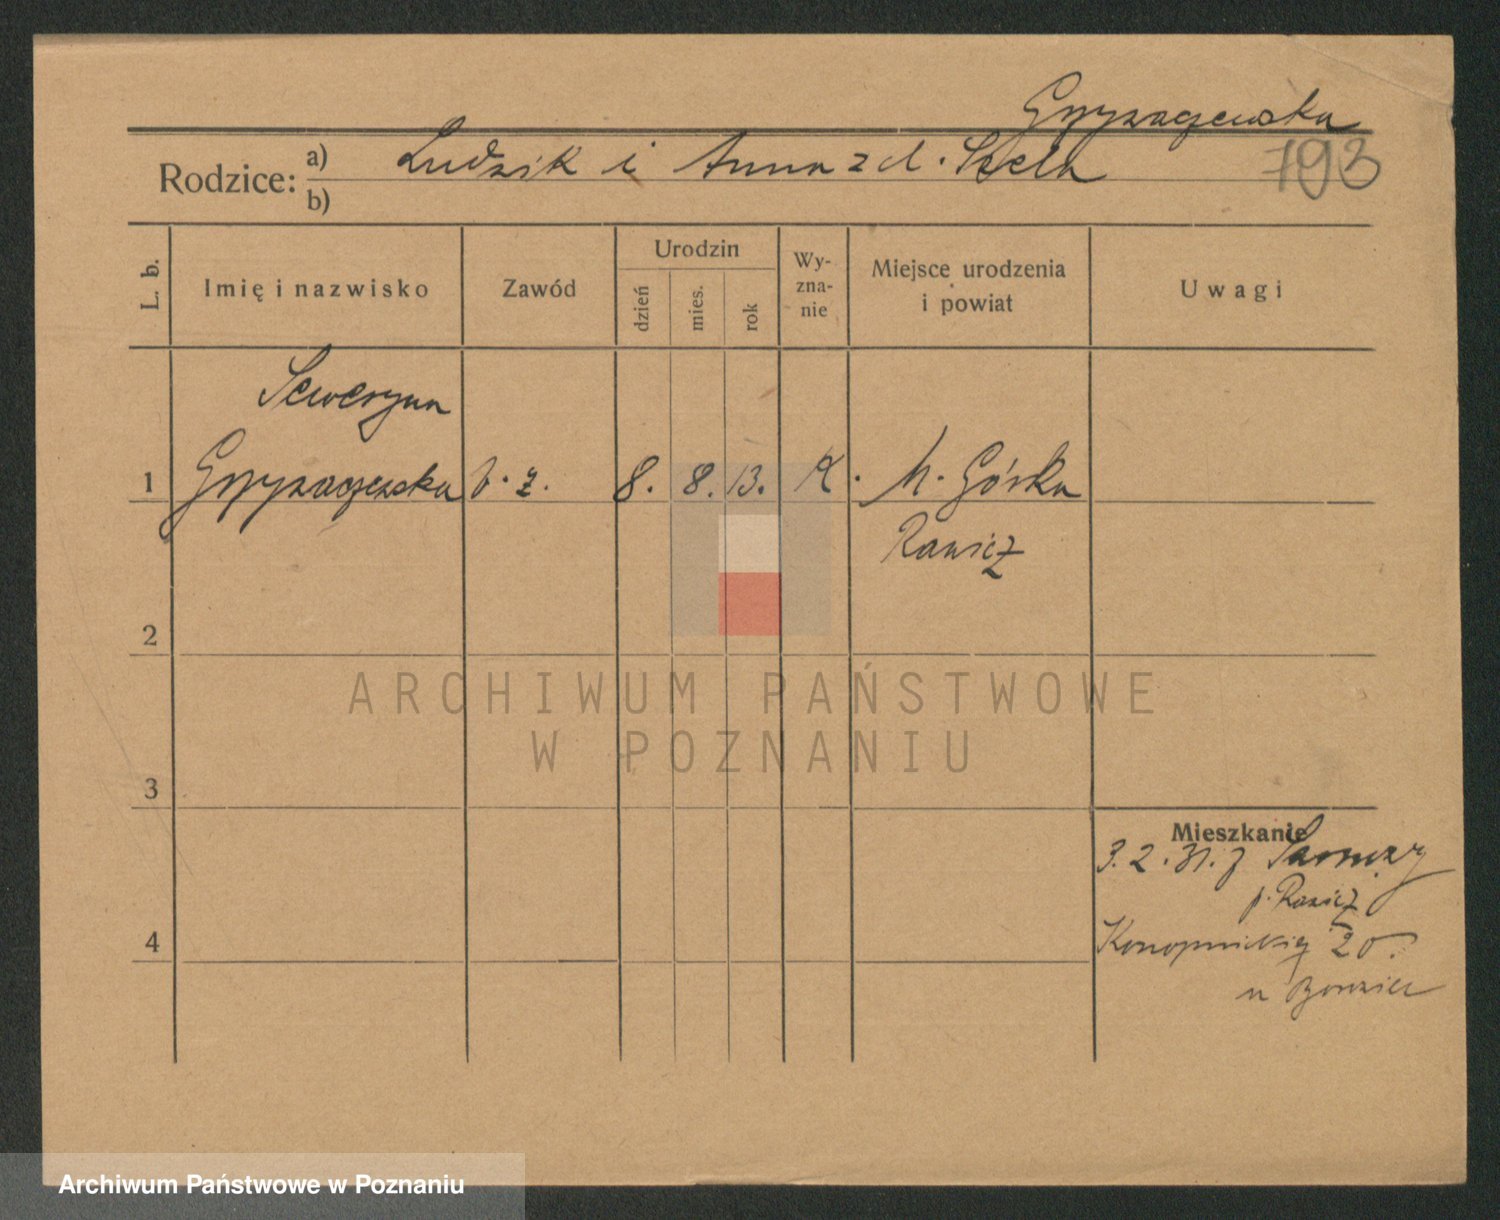 Rodzice: a) Ludzik i Anna z d. Szela
193
b)
L. b.
Imię i nazwisko
Zawód
Urodzin
dzień
mies.
rok
Wy-
zna-
nie
Miejsce urodzenia
i powiat
Uwagi
Seweryna
1 b. z. 8. 8. 13. R. M. Górka
Rawicz
2
ARCHIWUM PAŃSTWOWE
W POZNANIU
3
Mieszkanie
3. 2. 31. z
p. Rawicz
4 Konopnickiej 20.
Archiwum Państwowe w Poznaniu